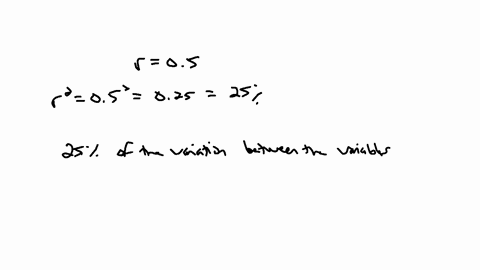 r = 0.5
r² = 0.5² = 0.25 = 25%
25% of the variation between the variables